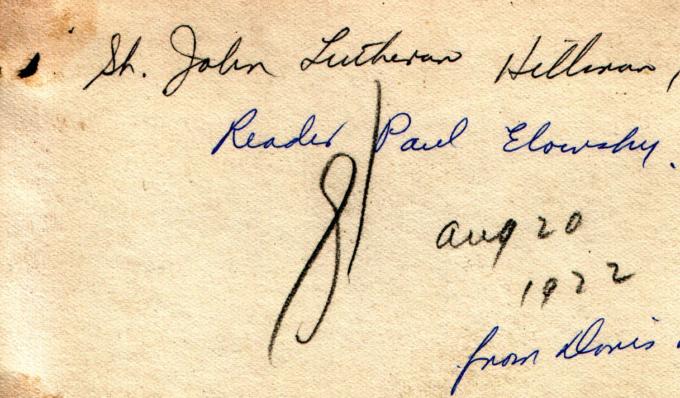 St. John Lutheran Hillman,
Reader Paul Elowsky.
Aug 20
1922
from Doris